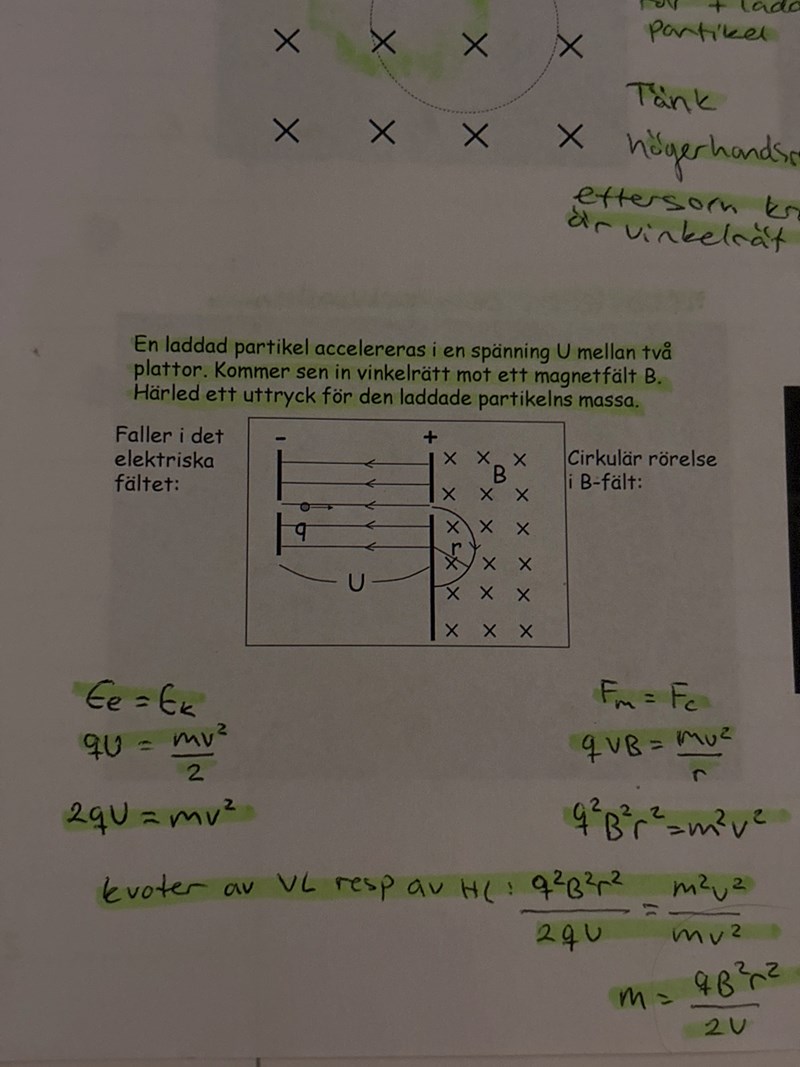 partikel
Tänk
eftersom
är vinkelrät
En laddad partikel accelereras i en spänning U mellan två
plattor. Kommer sen in vinkelrätt mot ett magnetfält B.
Härled ett uttryck för den laddade partikelns massa.
Faller i det
elektriska
fältet:
- +
B
q
r
U
Cirkulär rörelse
i B-fält:
Ee = Ek
qU = mv²/2
2qU = mv²
Fm = Fc
qVB = mv²/r
q²B²r² = m²v²
kvoter av VL resp av HL: q²B²r²/2qU = m²v²/mv²
m = qB²r²/2U